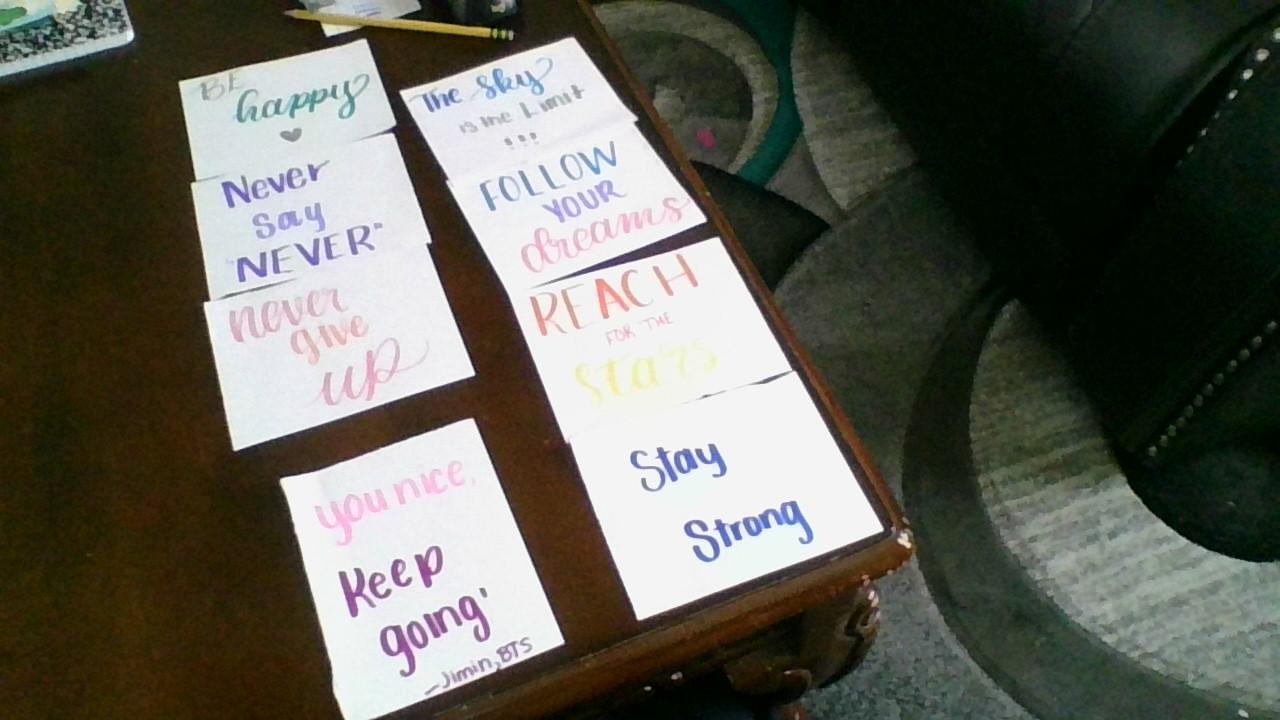 BE
happy
Never
say
"NEVER"
never
give
up
you nice,
Keep
going'
-Jimin, BTS
The Sky
is the Limit
!!!
FOLLOW
YOUR
dreams
REACH
FOR THE
Stars
Stay
Strong